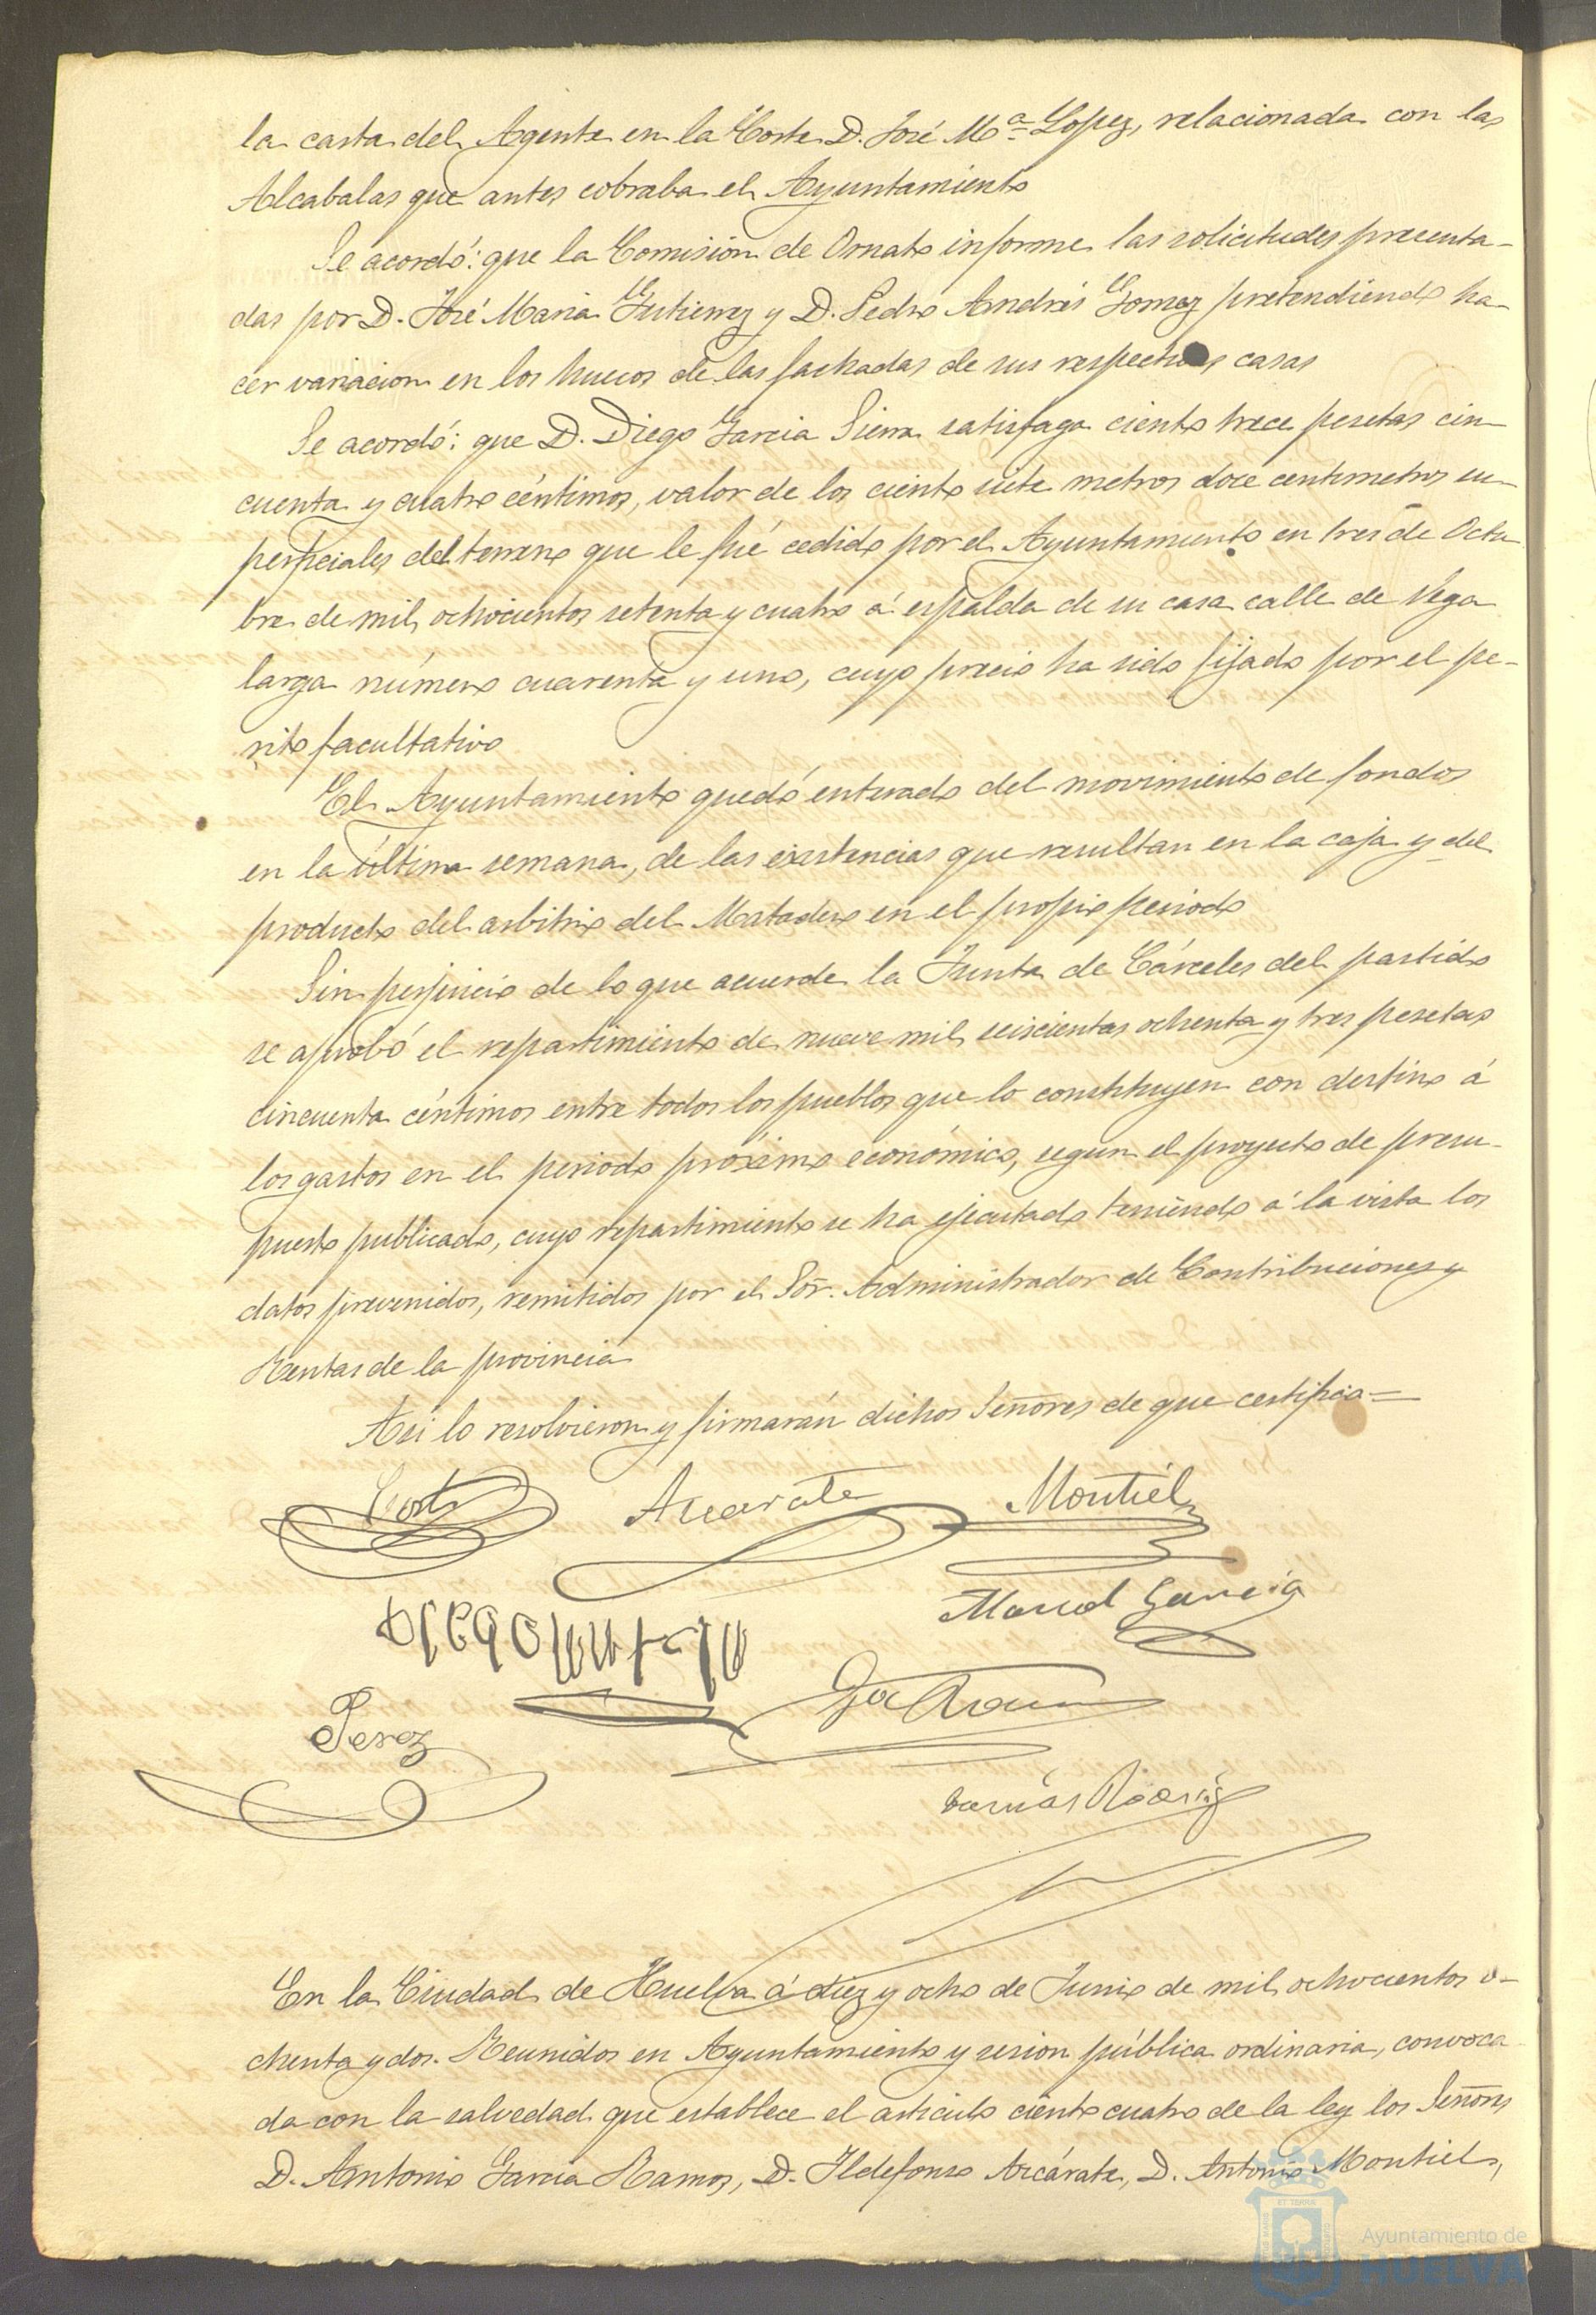 la carta del Agente en la Corte D. José Mª Lopez, relacionada con las
Alcabalas que antes cobraba el Ayuntamiento
Se acordó: que la Comision de Ornato informe las solicitudes presenta-
das por D. José Maria Gutierrez y D. Pedro Andrés Gomez pretendiendo ha-
cer variacion en los huecos de las fachadas de sus respectivas casas
Se acordó: que D. Diego Garcia Sierra satisfaga ciento trece pesetas cin-
cuenta y cuatro céntimos, valor de los ciento siete metros doce centimetros su-
perficiales del terreno que le fué cedido por el Ayuntamiento en tres de Octu
bre de mil ochocientos setenta y cuatro á espalda de su casa calle de Vega
larga número cuarenta y uno, cuyo precio ha sido fijado por el pe-
rito facultativo
El Ayuntamiento quedó enterado del movimiento de fondos
en la última semana, de las existencias que resultan en la caja y del
producto del arbitrio del Matadero en el propio periodo
Sin perjuicio de lo que acuerde la Junta de Cárceles del partido
se aprobó el repartimiento de nueve mil seiscientas ochenta y tres pesetas
cincuenta céntimos entre todos los pueblos que lo constituyen con destino á
los gastos en el periodo próximo económico, segun el proyecto de presu-
puesto publicado, cuyo repartimiento se ha ejecutado teniendo á la vista los
datos prevenidos, remitidos por el Sõr. Administrador de Contribuciones y
Rentas de la provincia
Asi lo resolvieron y firmarán dichos Señores de que certifico=
Azcarate Montiel
Manuel Garcia
Perez
En la Ciudad de Huelva á diez y ocho de Junio de mil ochocientos o-
chenta y dos. Reunidos en Ayuntamiento y sesion pública ordinaria, convoca
da con la salvedad que establece el artículo ciento cuatro de la ley los Señores
D. Antonio Garcia Ramos, D. Ildefonso Azcárate, D. Antonio Montiel,
Ayuntamiento de
HUELVA